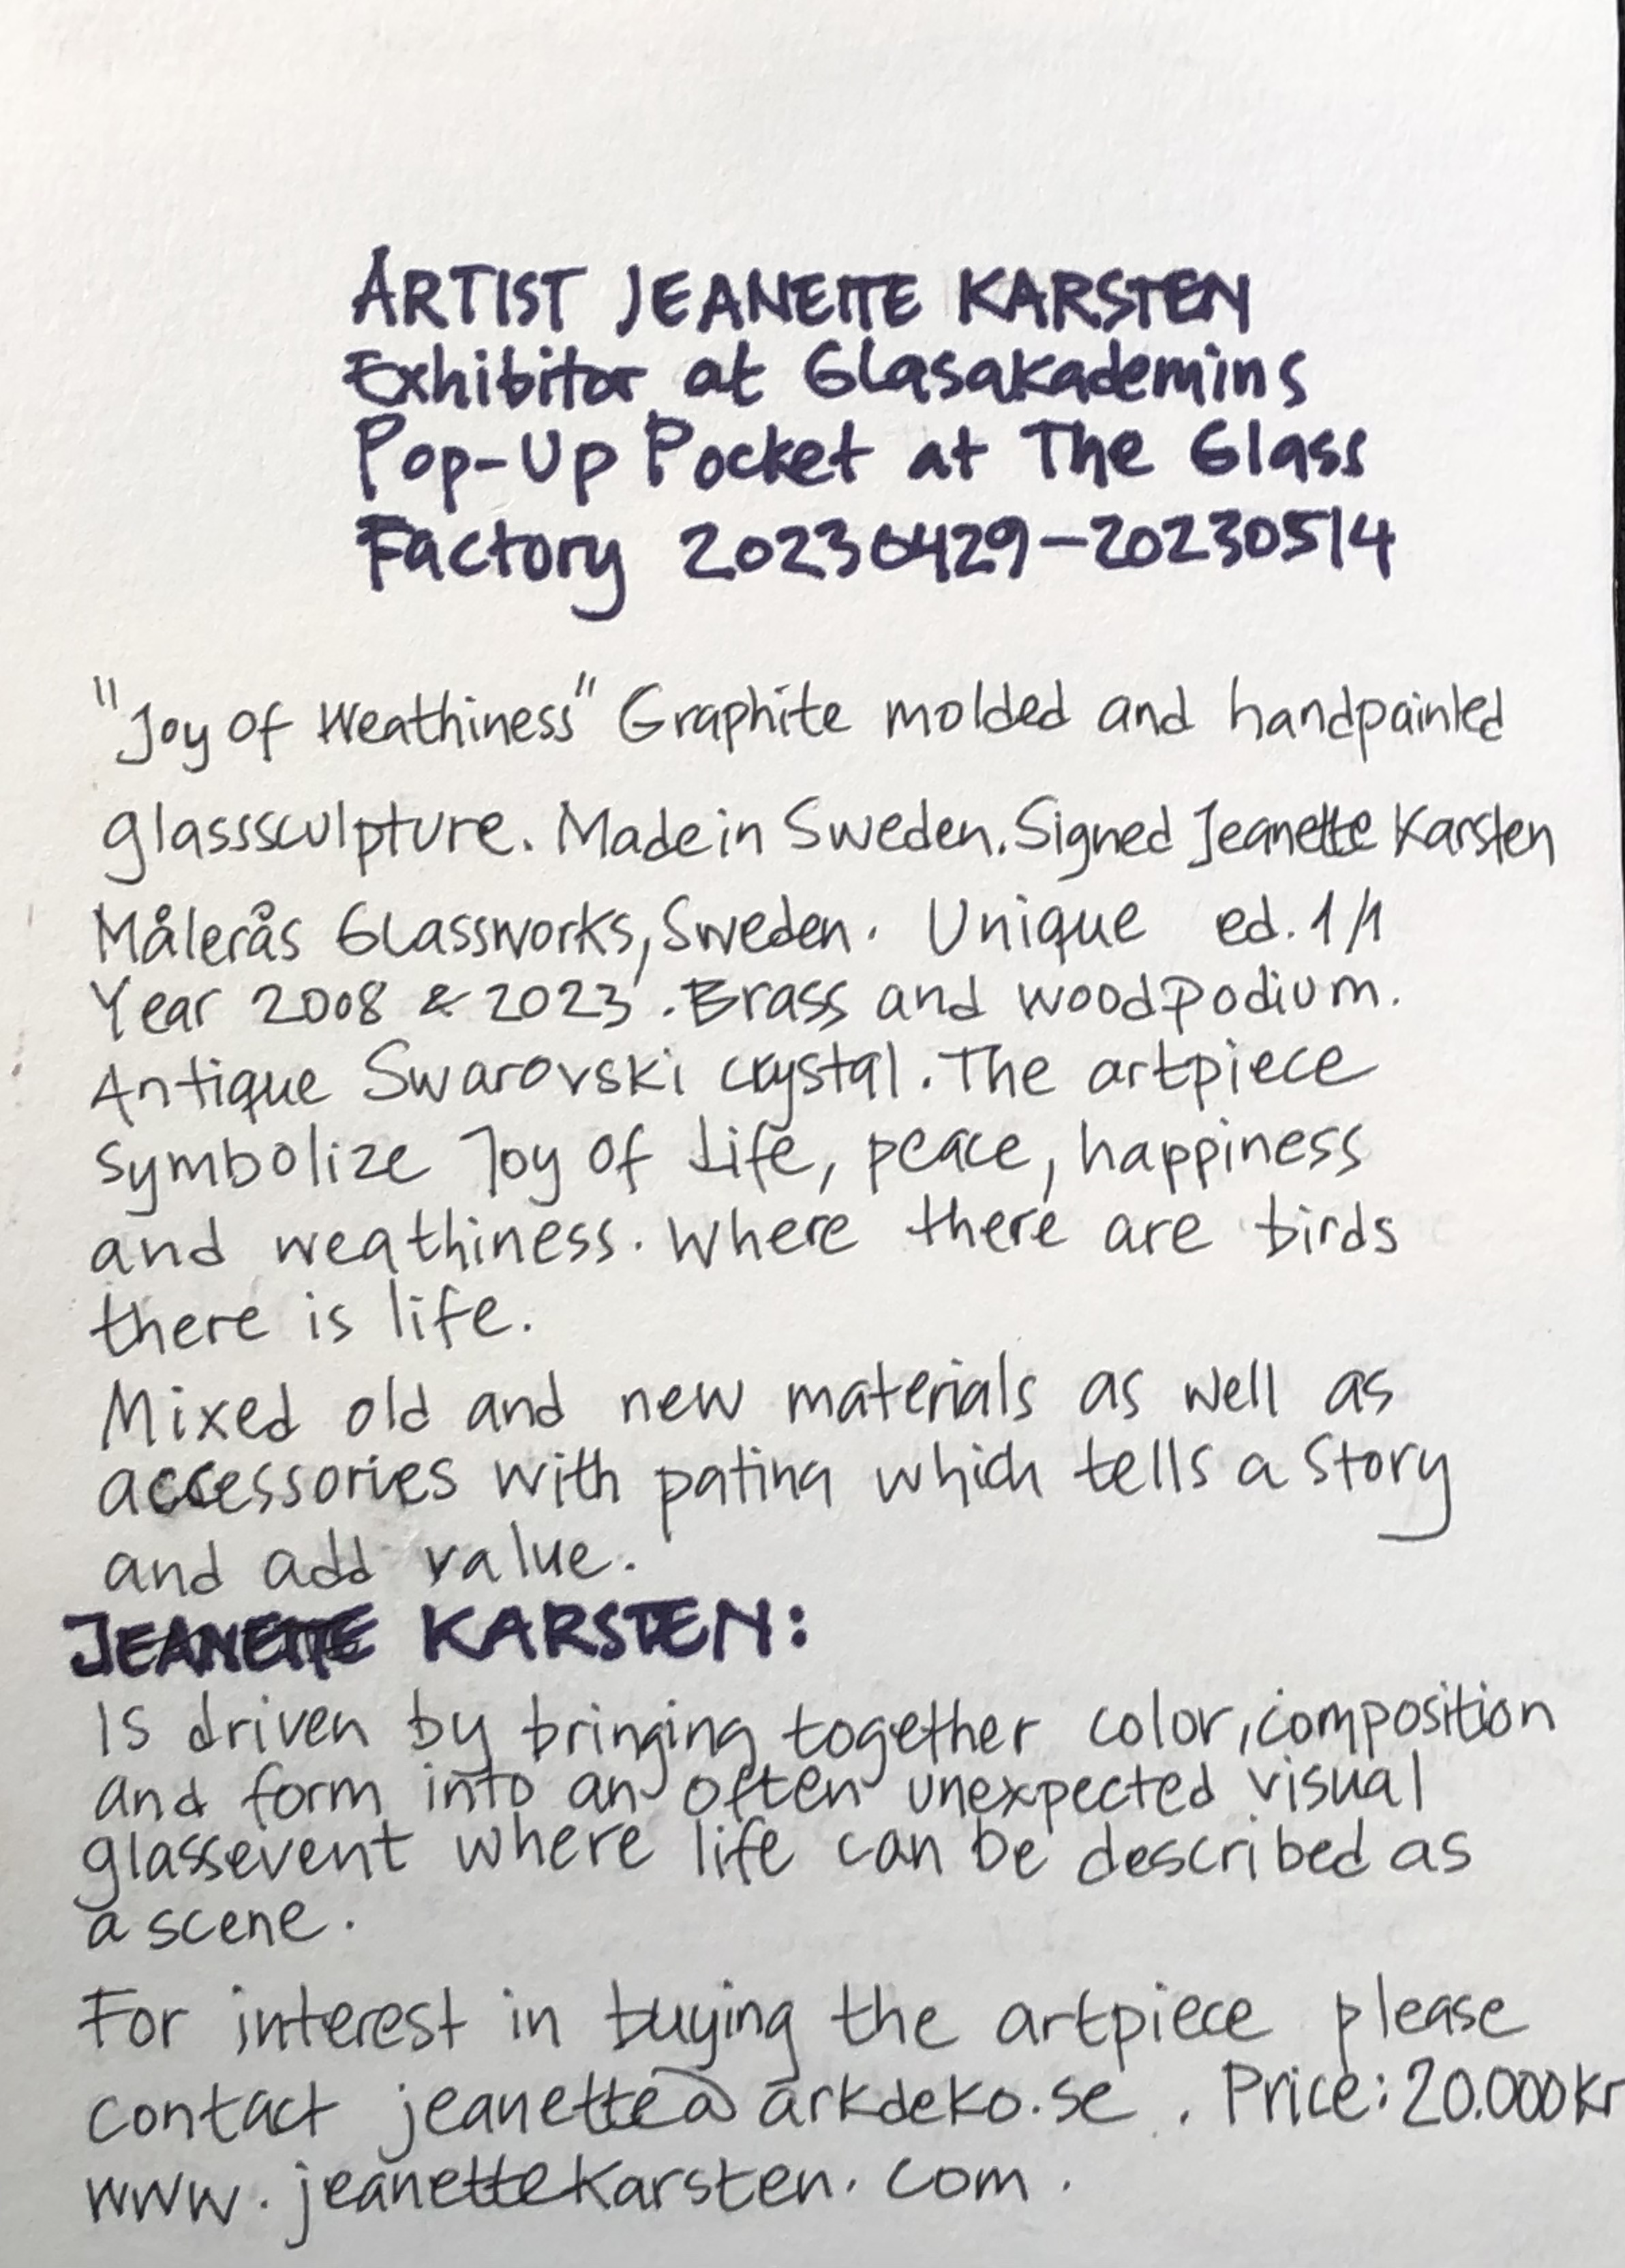 ARTIST JEANETTE KARSTEN
Exhibitor at Glasakademins
Pop-Up Pocket at The Glass
Factory 20230429-20230514
"Joy of Weathiness" Graphite molded and handpainted
glasssculpture. Made in Sweden. Signed Jeanette Karsten
Målerås Glassworks, Sweden. Unique ed. 1/1
Year 2008 & 2023. Brass and woodpodium.
Antique Swarovski crystal. The artpiece
symbolize Joy of Life, peace, happiness
and weathiness. Where there are birds
there is life.
Mixed old and new materials as well as
accessories with patina which tells a story
and add value.
JEANETTE KARSTEN:
Is driven by bringing together color, composition
and form into an often unexpected visual
glassevent where life can be described as
a scene.
For interest in buying the artpiece please
contact jeanette@arkdeko.se. Price: 20.000kr
www.jeanettekarsten.com.